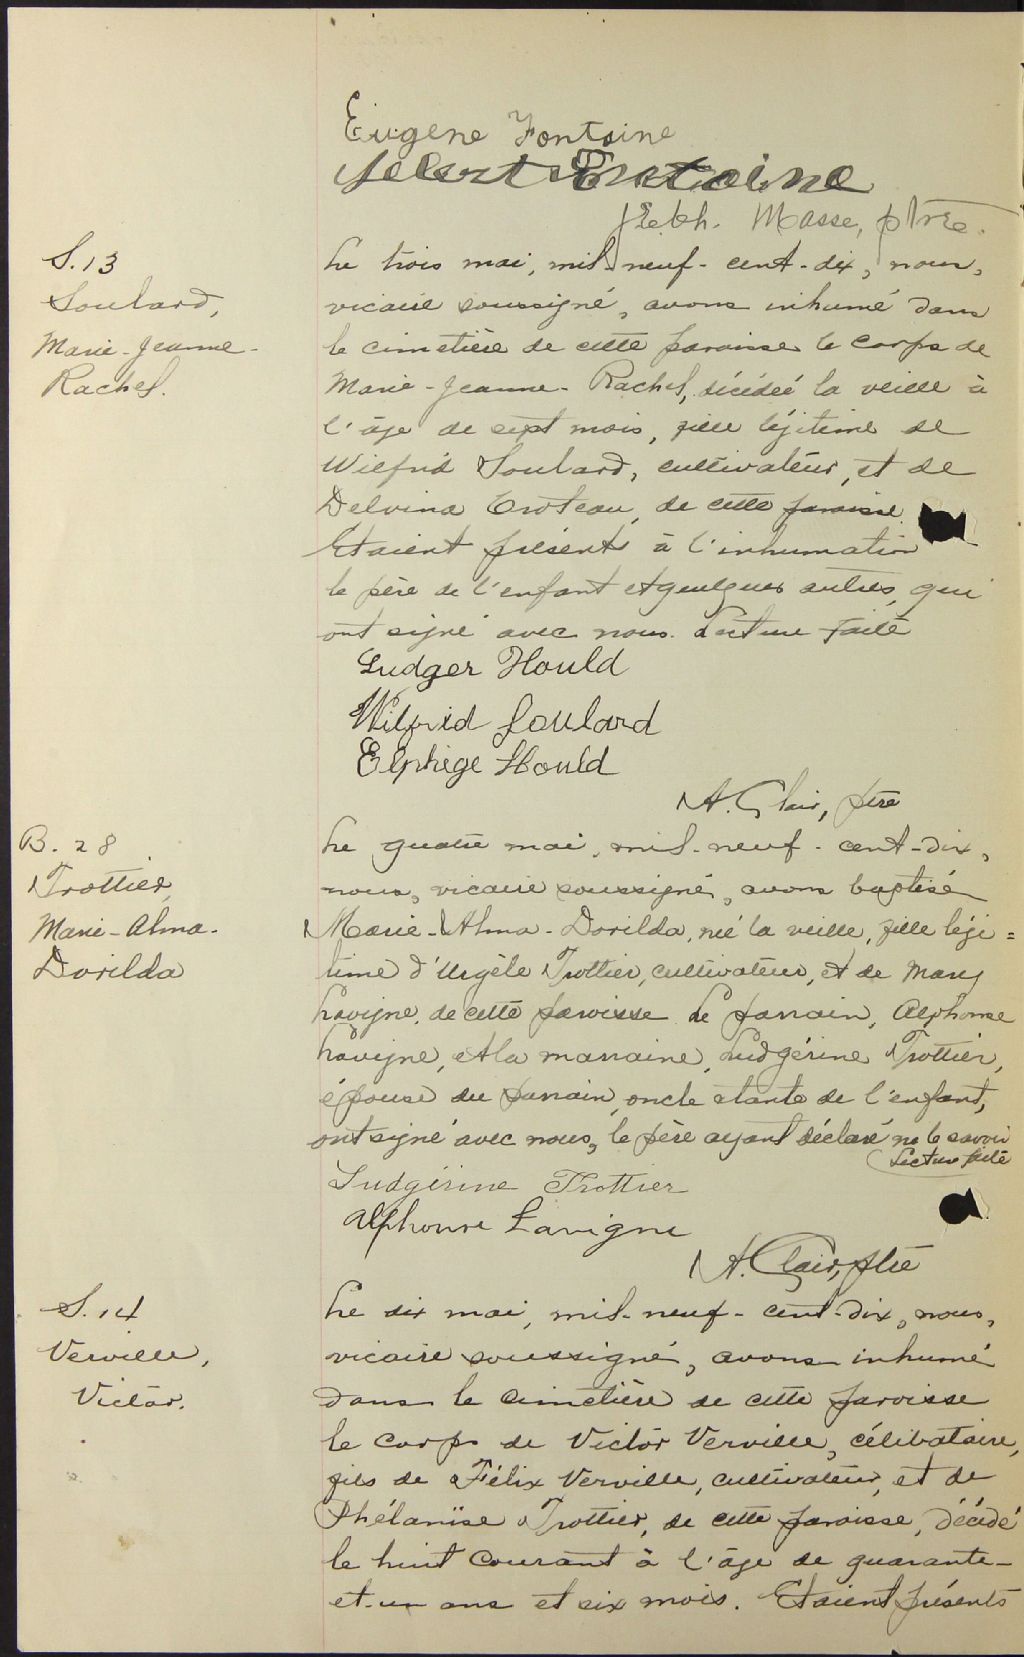 Eugène Fontaine
Fontaine
Masse, ptre.
S. 13
Soulard,
Marie-Jeanne-
Rachel.
Le trois mai, mil-neuf-cent-dix, nous,
vicaire soussigné, avons inhumé dans
le cimetière de cette paroisse le corps de
Marie-Jeanne-Rachel, décédée la veille à
l'âge de sept mois, fille légitime de
Wilfrid Soulard, cultivateur, et de
Delvina Croteau, de cette paroisse.
Etaient présents à l'inhumation
le père de l'enfant et quelques autres, qui
ont signé avec nous. Lecture faite
Ludger Hould
Wilfrid Soulard
Elphège Hould
A. Clair, ptre
B. 28
Trottier,
Marie-Alma-
Dorilda
Le quatre mai, mil-neuf-cent-dix,
nous, vicaire soussigné, avons baptisé
Marie-Alma-Dorilda, née la veille, fille légi=
time d'Urgèle Trottier, cultivateur, et de Mary
Lavigne, de cette paroisse Le parrain, Alphonse
Lavigne, et la marraine, Ludgérine Trottier,
épouse du parrain, oncle et tante de l'enfant,
ont signé avec nous, le père ayant déclaré ne le savoir
Lecture faite
Ludgérine Trottier
Alphonse Lavigne
A. Clair, ptre
S. 14
Verville,
Victor.
Le dix mai, mil-neuf-cent-dix, nous,
vicaire soussigné, avons inhumé
dans le cimetière de cette paroisse
le corps de Victor Verville, célibataire,
fils de Félix Verville, cultivateur, et de
Phélanise Trottier, de cette paroisse, décédé
le huit courant à l'âge de quarante-
et-un ans et six mois. Etaient présents